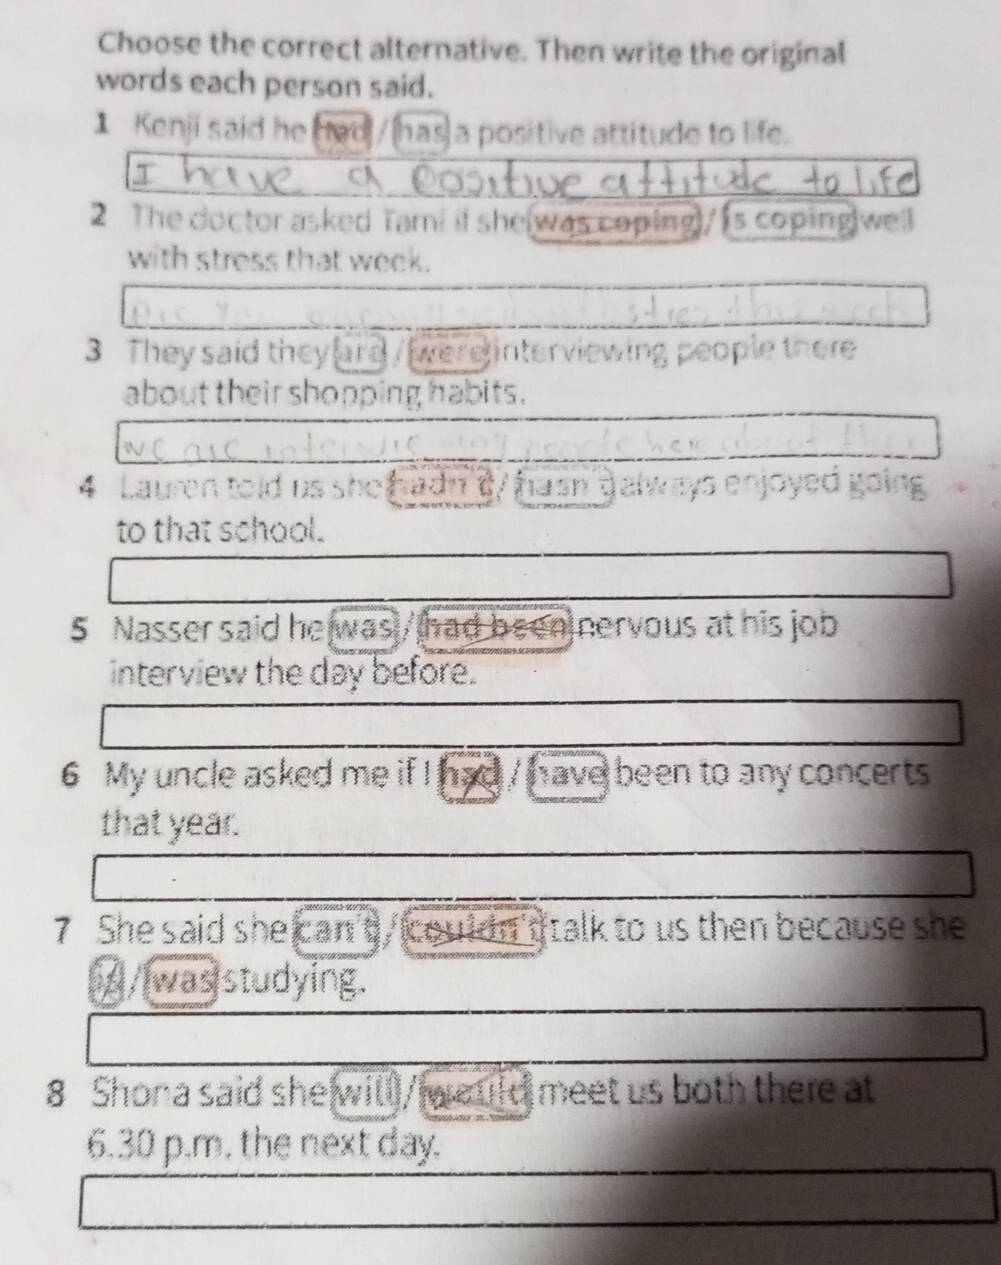 Choose the correct alternative. Then write the original
words each person said.
1 Kenji said he had / has a positive attitude to life.
I have a positive attitude to life
2 The doctor asked Tami if she was coping / is coping well
with stress that week.
this week
3 They said they are / were interviewing people there
about their shopping habits.
we are people here about their
4 Lauren told us she hadn't / hasn't always enjoyed going
to that school.
5 Nasser said he was / had been nervous at his job
interview the day before.
6 My uncle asked me if I had / have been to any concerts
that year.
7 She said she can't / couldn't talk to us then because she
is / was studying.
8 Shona said she will / would meet us both there at
6.30 p.m. the next day.